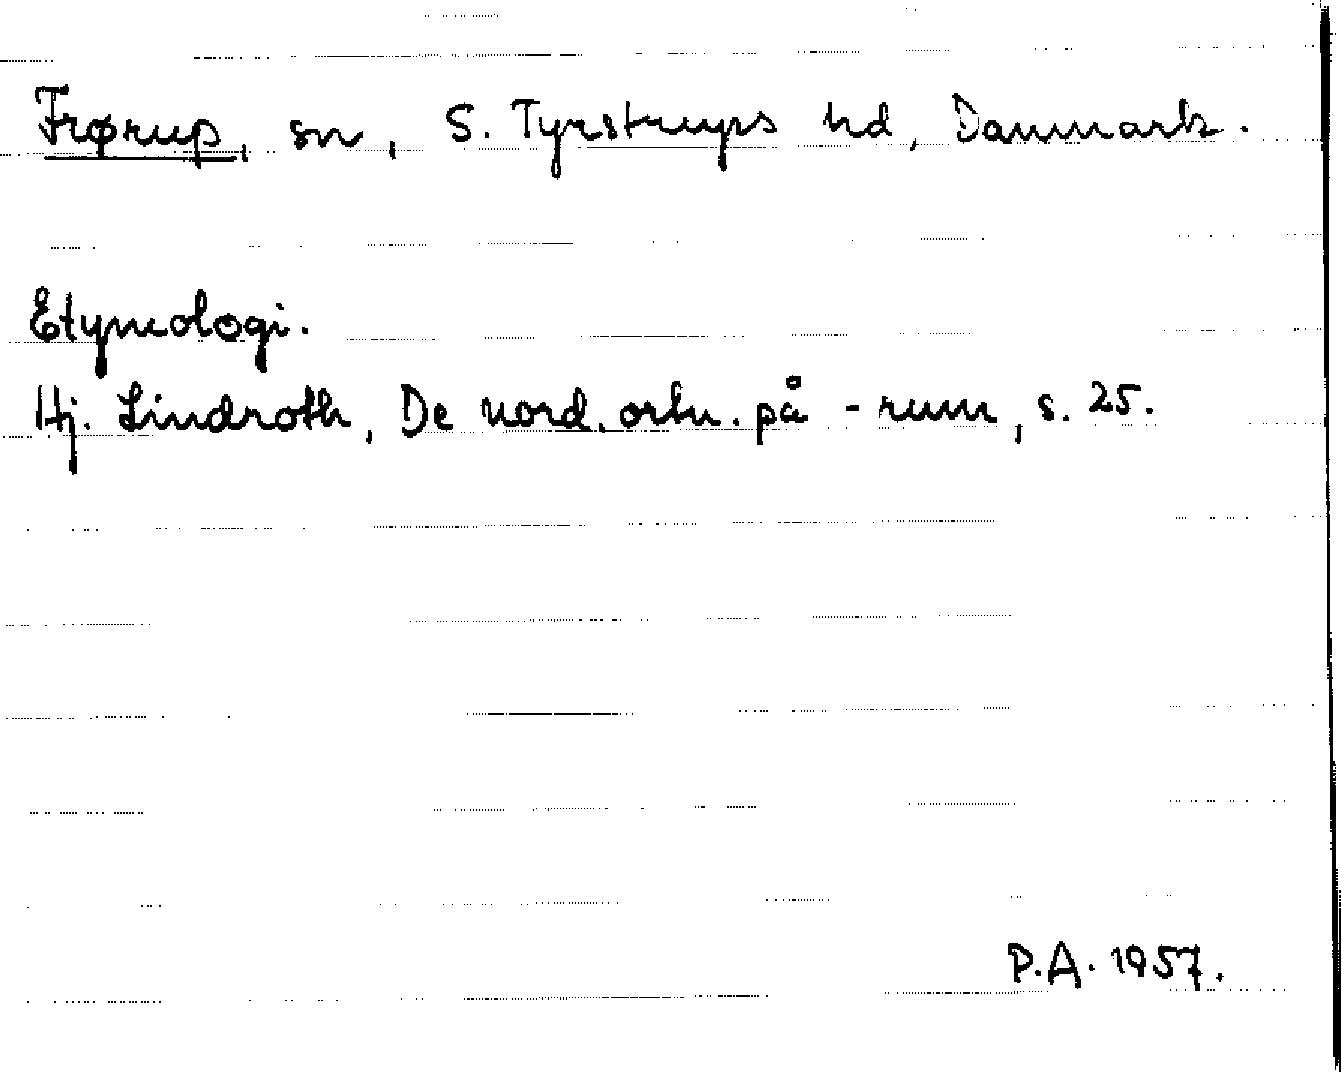 Frørup, sn, S. Tyrstrups hd, Danmark.
Etymologi.
Hj. Lindroth, De nord. ortn. på -rum, s. 25.
P.A. 1957.